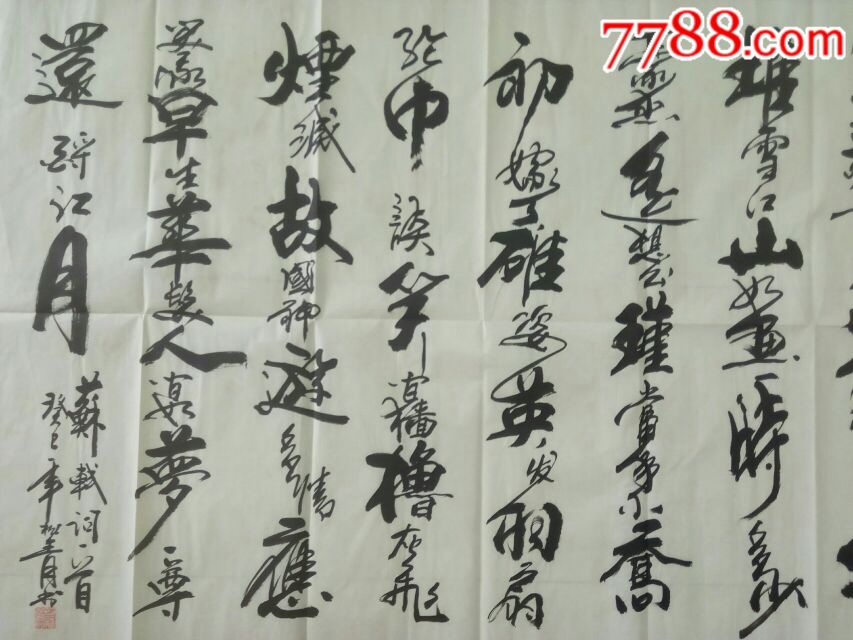 堆雪江山如畫一時多少
豪傑遙想公瑾當年小喬
初嫁了雄姿英发羽扇
綸巾談笑間檣櫓灰飛
煙滅故國神遊多情應
笑我早生華髮人間如夢一尊
還酹江月
蘇軾詞一首
癸巳年
7788.com